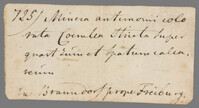 725/ Minera antimonii colo
rata Coerulea Striata super
quartzum et spatum calca
reum
Braunsdorf prope Freiberg.